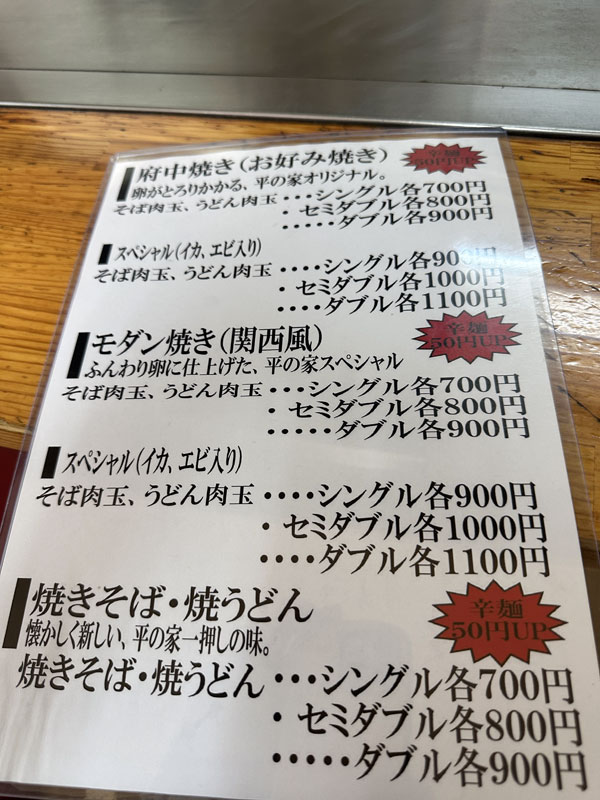 府中焼き(お好み焼き)
辛麺
50円UP
卵がとろりかかる、平の家オリジナル。
そば肉玉、うどん肉玉・・・シングル各700円
・セミダブル各800円
・・・・・ダブル各900円
スペシャル(イカ、エビ入り)
そば肉玉、うどん肉玉・・・・シングル各900円
・セミダブル各1000円
・・・・ダブル各1100円
モダン焼き(関西風)
辛麺
50円UP
ふんわり卵に仕上げた、平の家スペシャル
そば肉玉、うどん肉玉・・・・シングル各700円
・セミダブル各800円
・・・・・ダブル各900円
スペシャル(イカ、エビ入り)
そば肉玉、うどん肉玉・・・・シングル各900円
・セミダブル各1000円
・・・・ダブル各1100円
焼きそば・焼うどん
辛麺
50円UP
懐かしく新しい、平の家一押しの味。
焼きそば・焼うどん・・・シングル各700円
・セミダブル各800円
・・・・・ダブル各900円